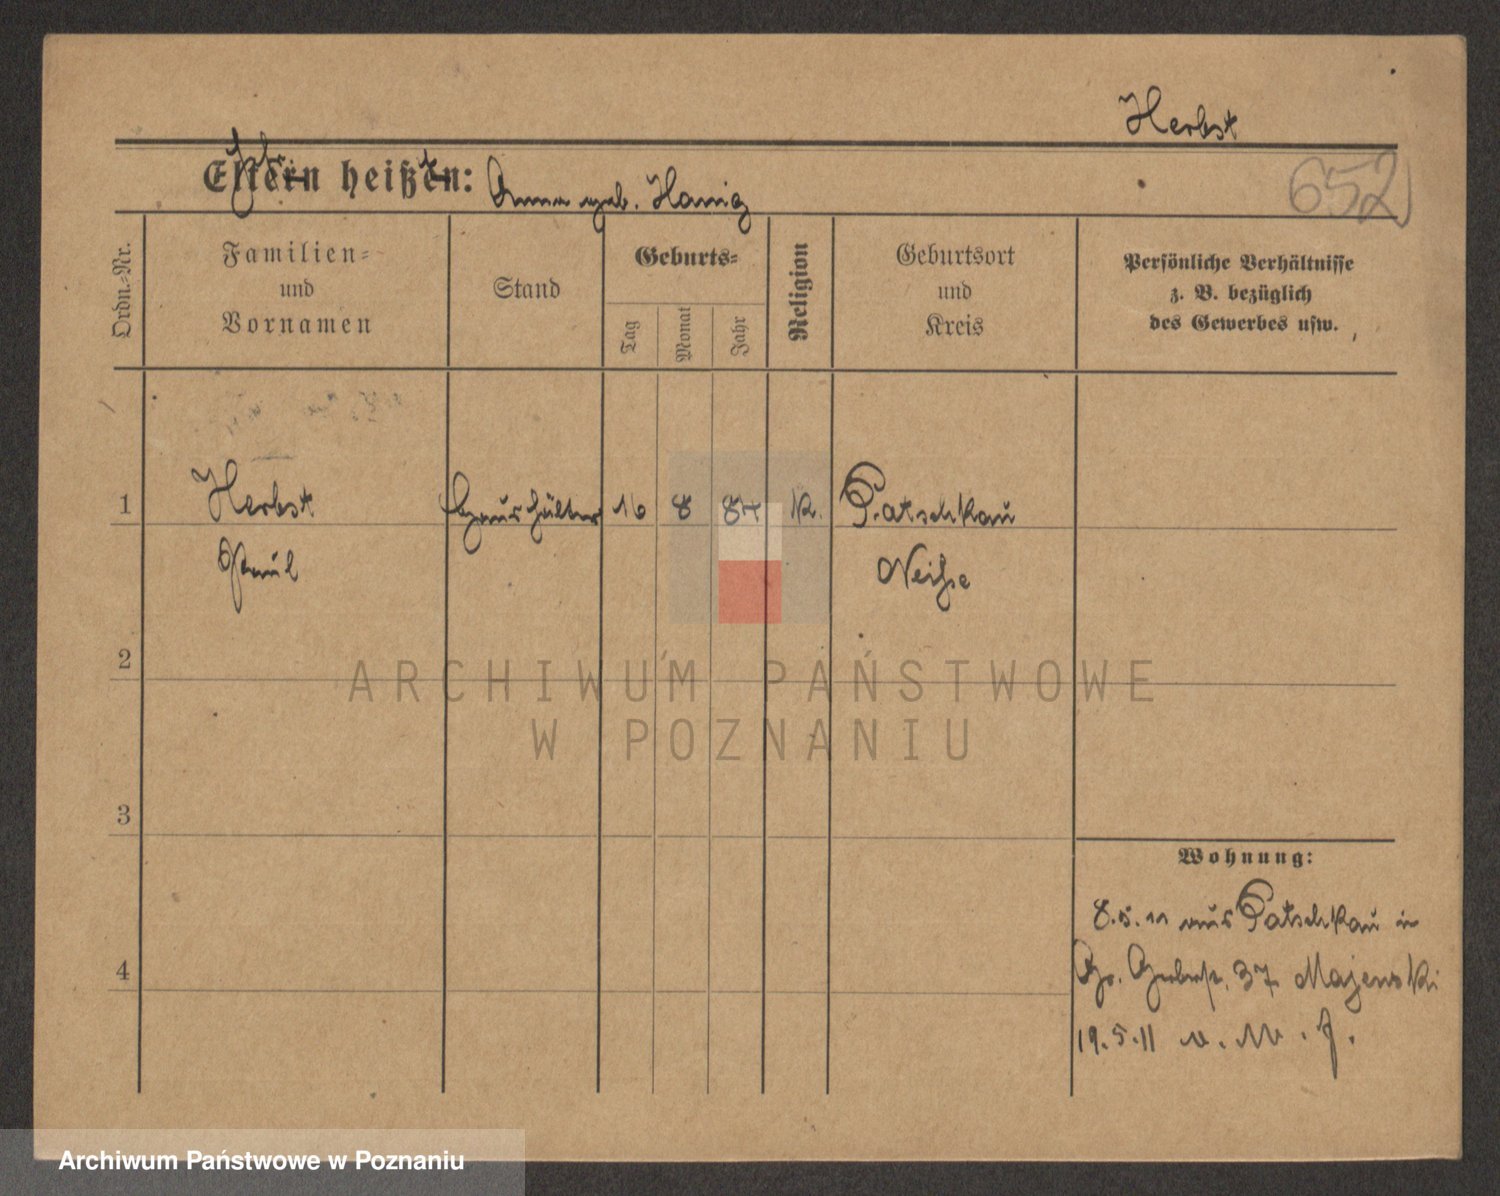 Herbst
Eltern heißen: Anna geb. Hanig
652
Ordn.-Nr.
Familien-
und
Vornamen
Stand
Geburts-
Tag
Monat
Jahr
Religion
Geburtsort
und
Kreis
Persönliche Verhältnisse
z. B. bezüglich
des Gewerbes usw.
1 Herbst Haushälter 16 8 87 k. Patschkau
Paul Neiße
2
ARCHIWUM PAŃSTWOWE
W POZNANIU
3
Wohnung:
8.5.11 aus Patschkau in
37 Majewski
4
19.5.11
Archiwum Państwowe w Poznaniu